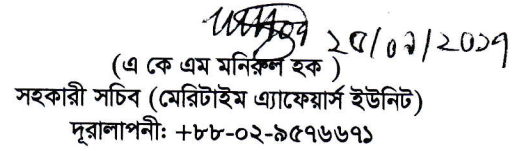 ২৫/০৯/২০১৭
(এ কে এম মনিরুল হক )
সহকারী সচিব (মেরিটাইম এ্যাফেয়ার্স ইউনিট)
দূরালাপনীঃ +৮৮-০২-৯৫৭৬৬৭১